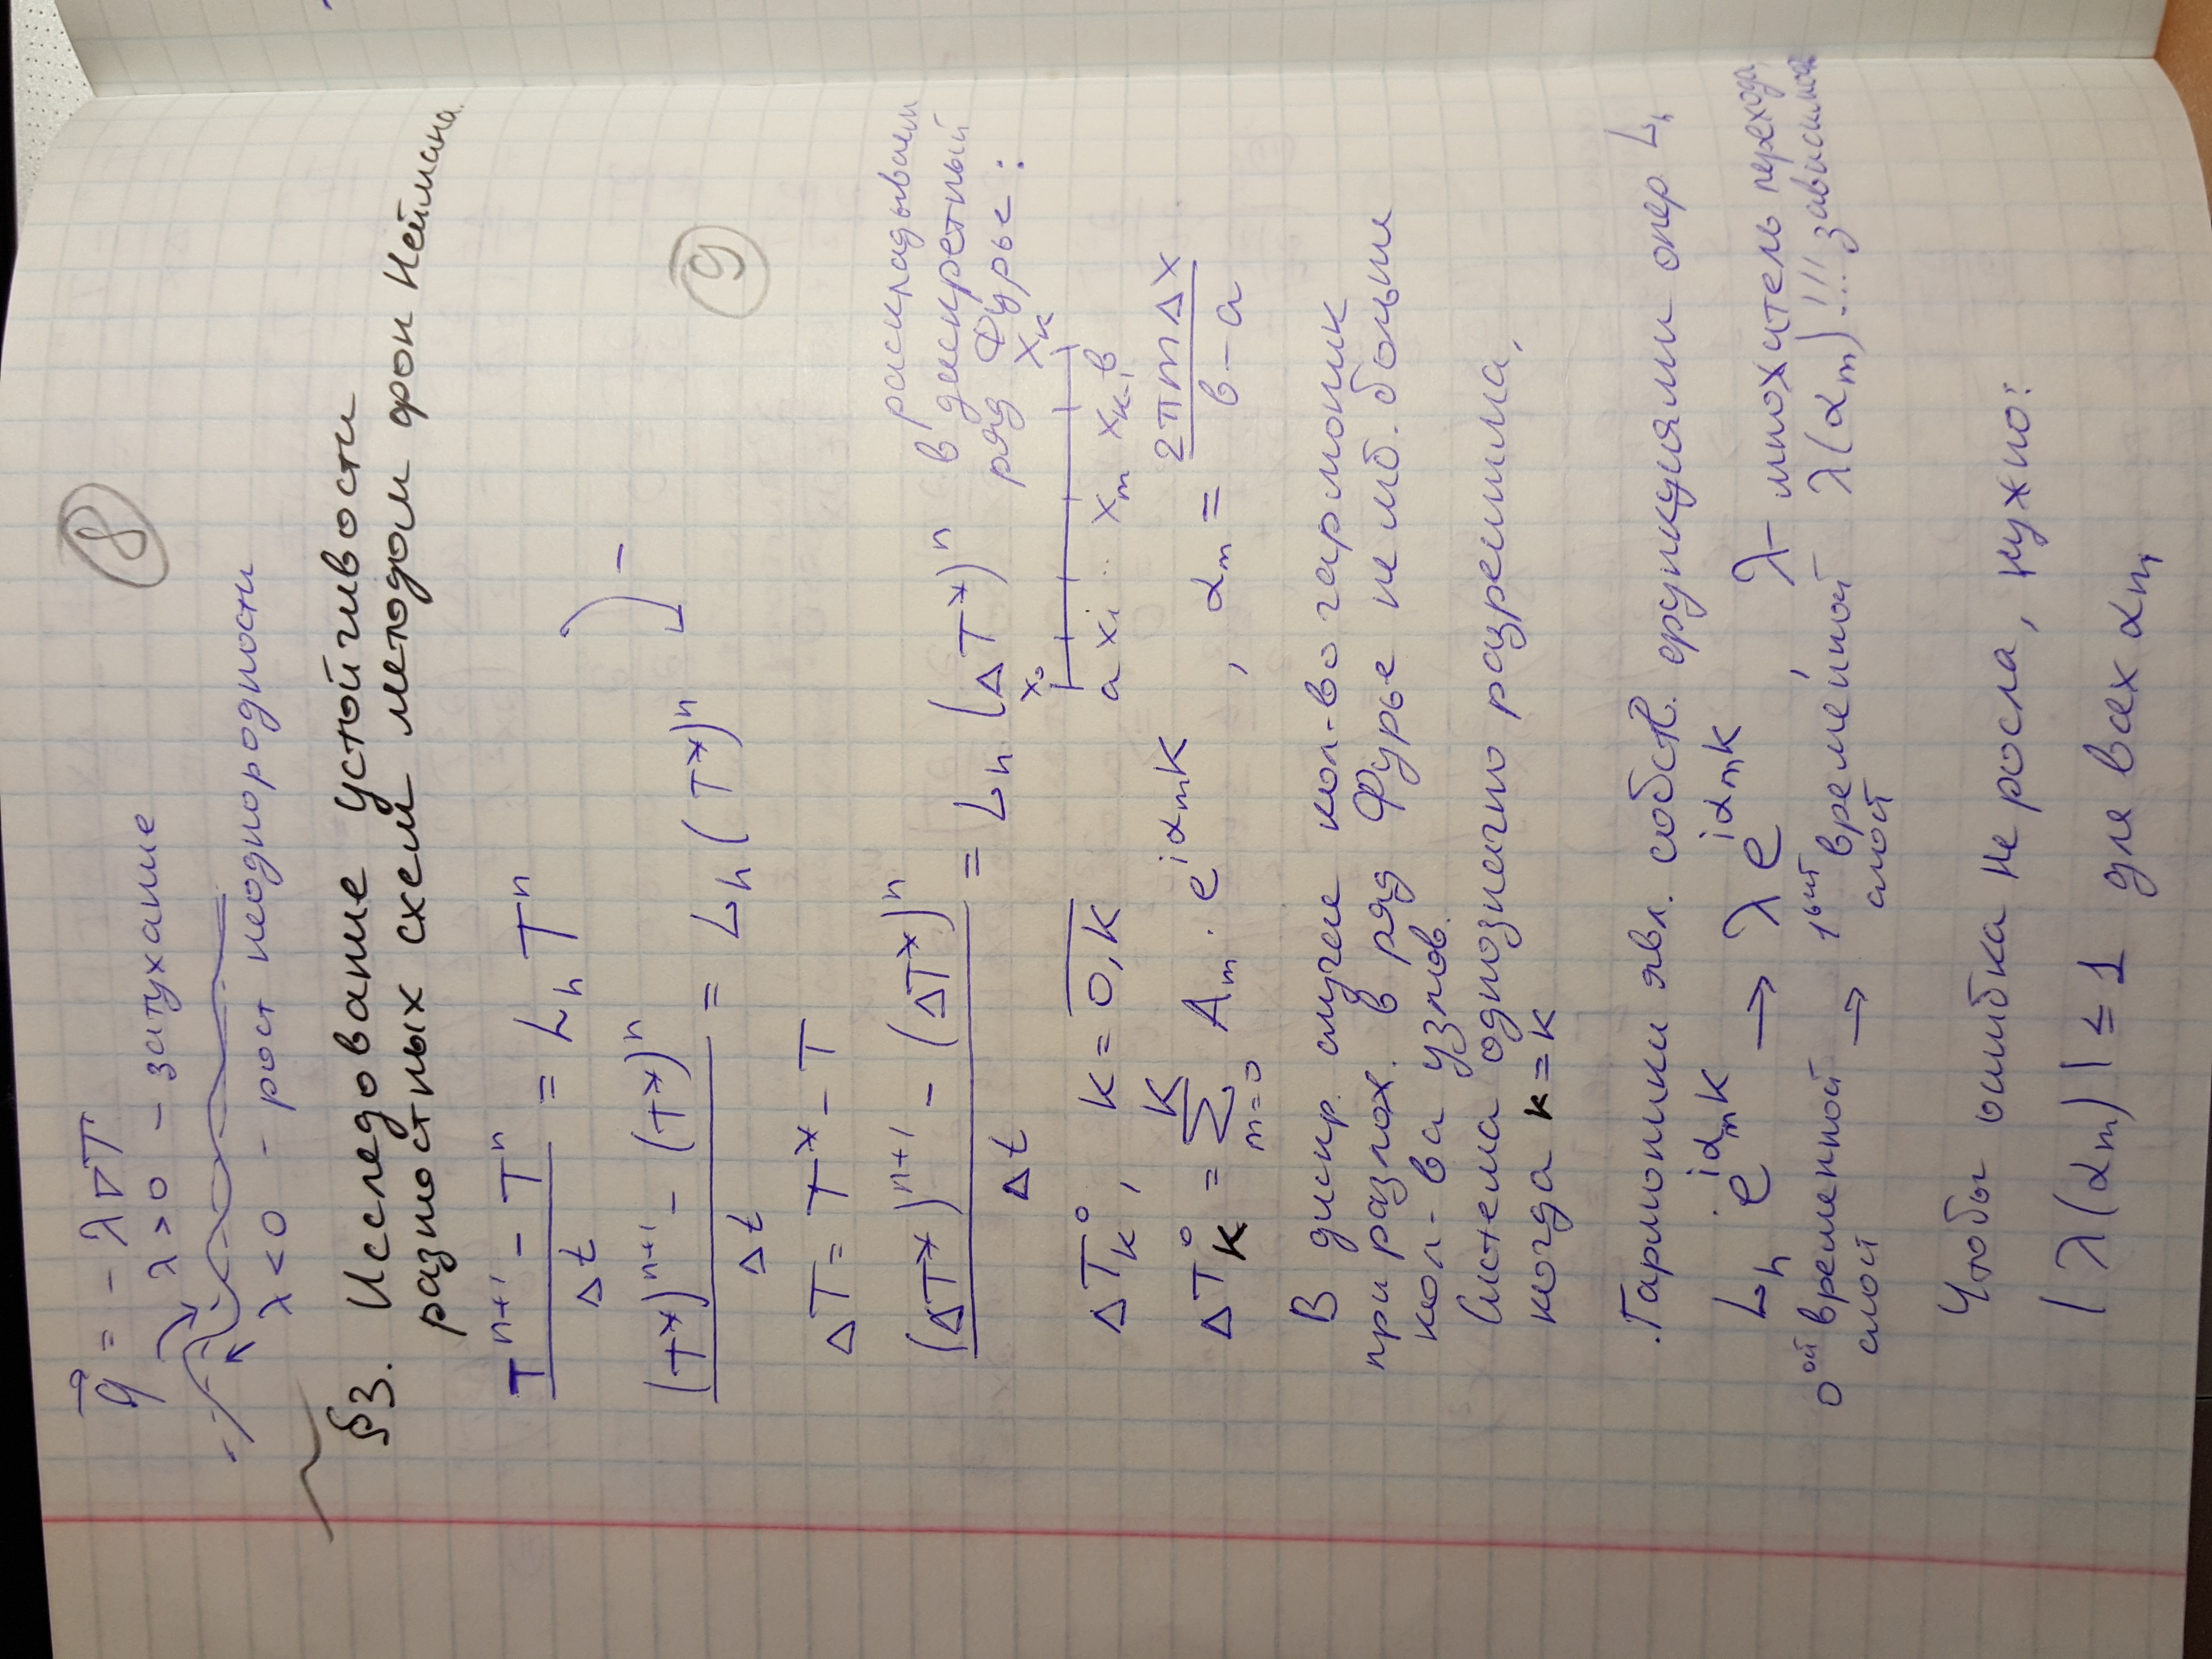 q⃗ = - λ∇T
⑧
λ > 0 - затухание
λ < 0 - рост неоднородности
§3. Исследование устойчивости
разностных схем методом фон Неймана.
(T^{n+1} - T^n) / Δt = L_h T^n
((T*)^{n+1} - (T*)^n) / Δt = L_h (T*)^n ) -
⑨
ΔT = T* - T
((ΔT*)^{n+1} - (ΔT*)^n) / Δt = L_h (ΔT*)^n
раскладываем
в дискретный
ряд Фурье:
x_0 x_K
a x_1 .. x_m x_{K-1} b
ΔT_K^0, K = \overline{0,K}
ΔT_K^0 = Σ_{m=0}^{K} A_m · e^{iα_m K}, α_m = 2πmΔx / (b-a)
В дискр. случае кол-во гармоник
при разлож. в ряд Фурье не мб. больше
кол-ва узлов.
Система однозначно разрешима,
когда K = K
Гармоники явл. собств. функциями опер. L_h
L_h e^{iα_m K} → λ e^{iα_m K}, λ - множитель перехода
0ой временной слой → 1ый временной слой λ(α_m)!!! зависимость
Чтобы ошибка не росла, нужно:
|λ(α_m)| ≤ 1 для всех α_m